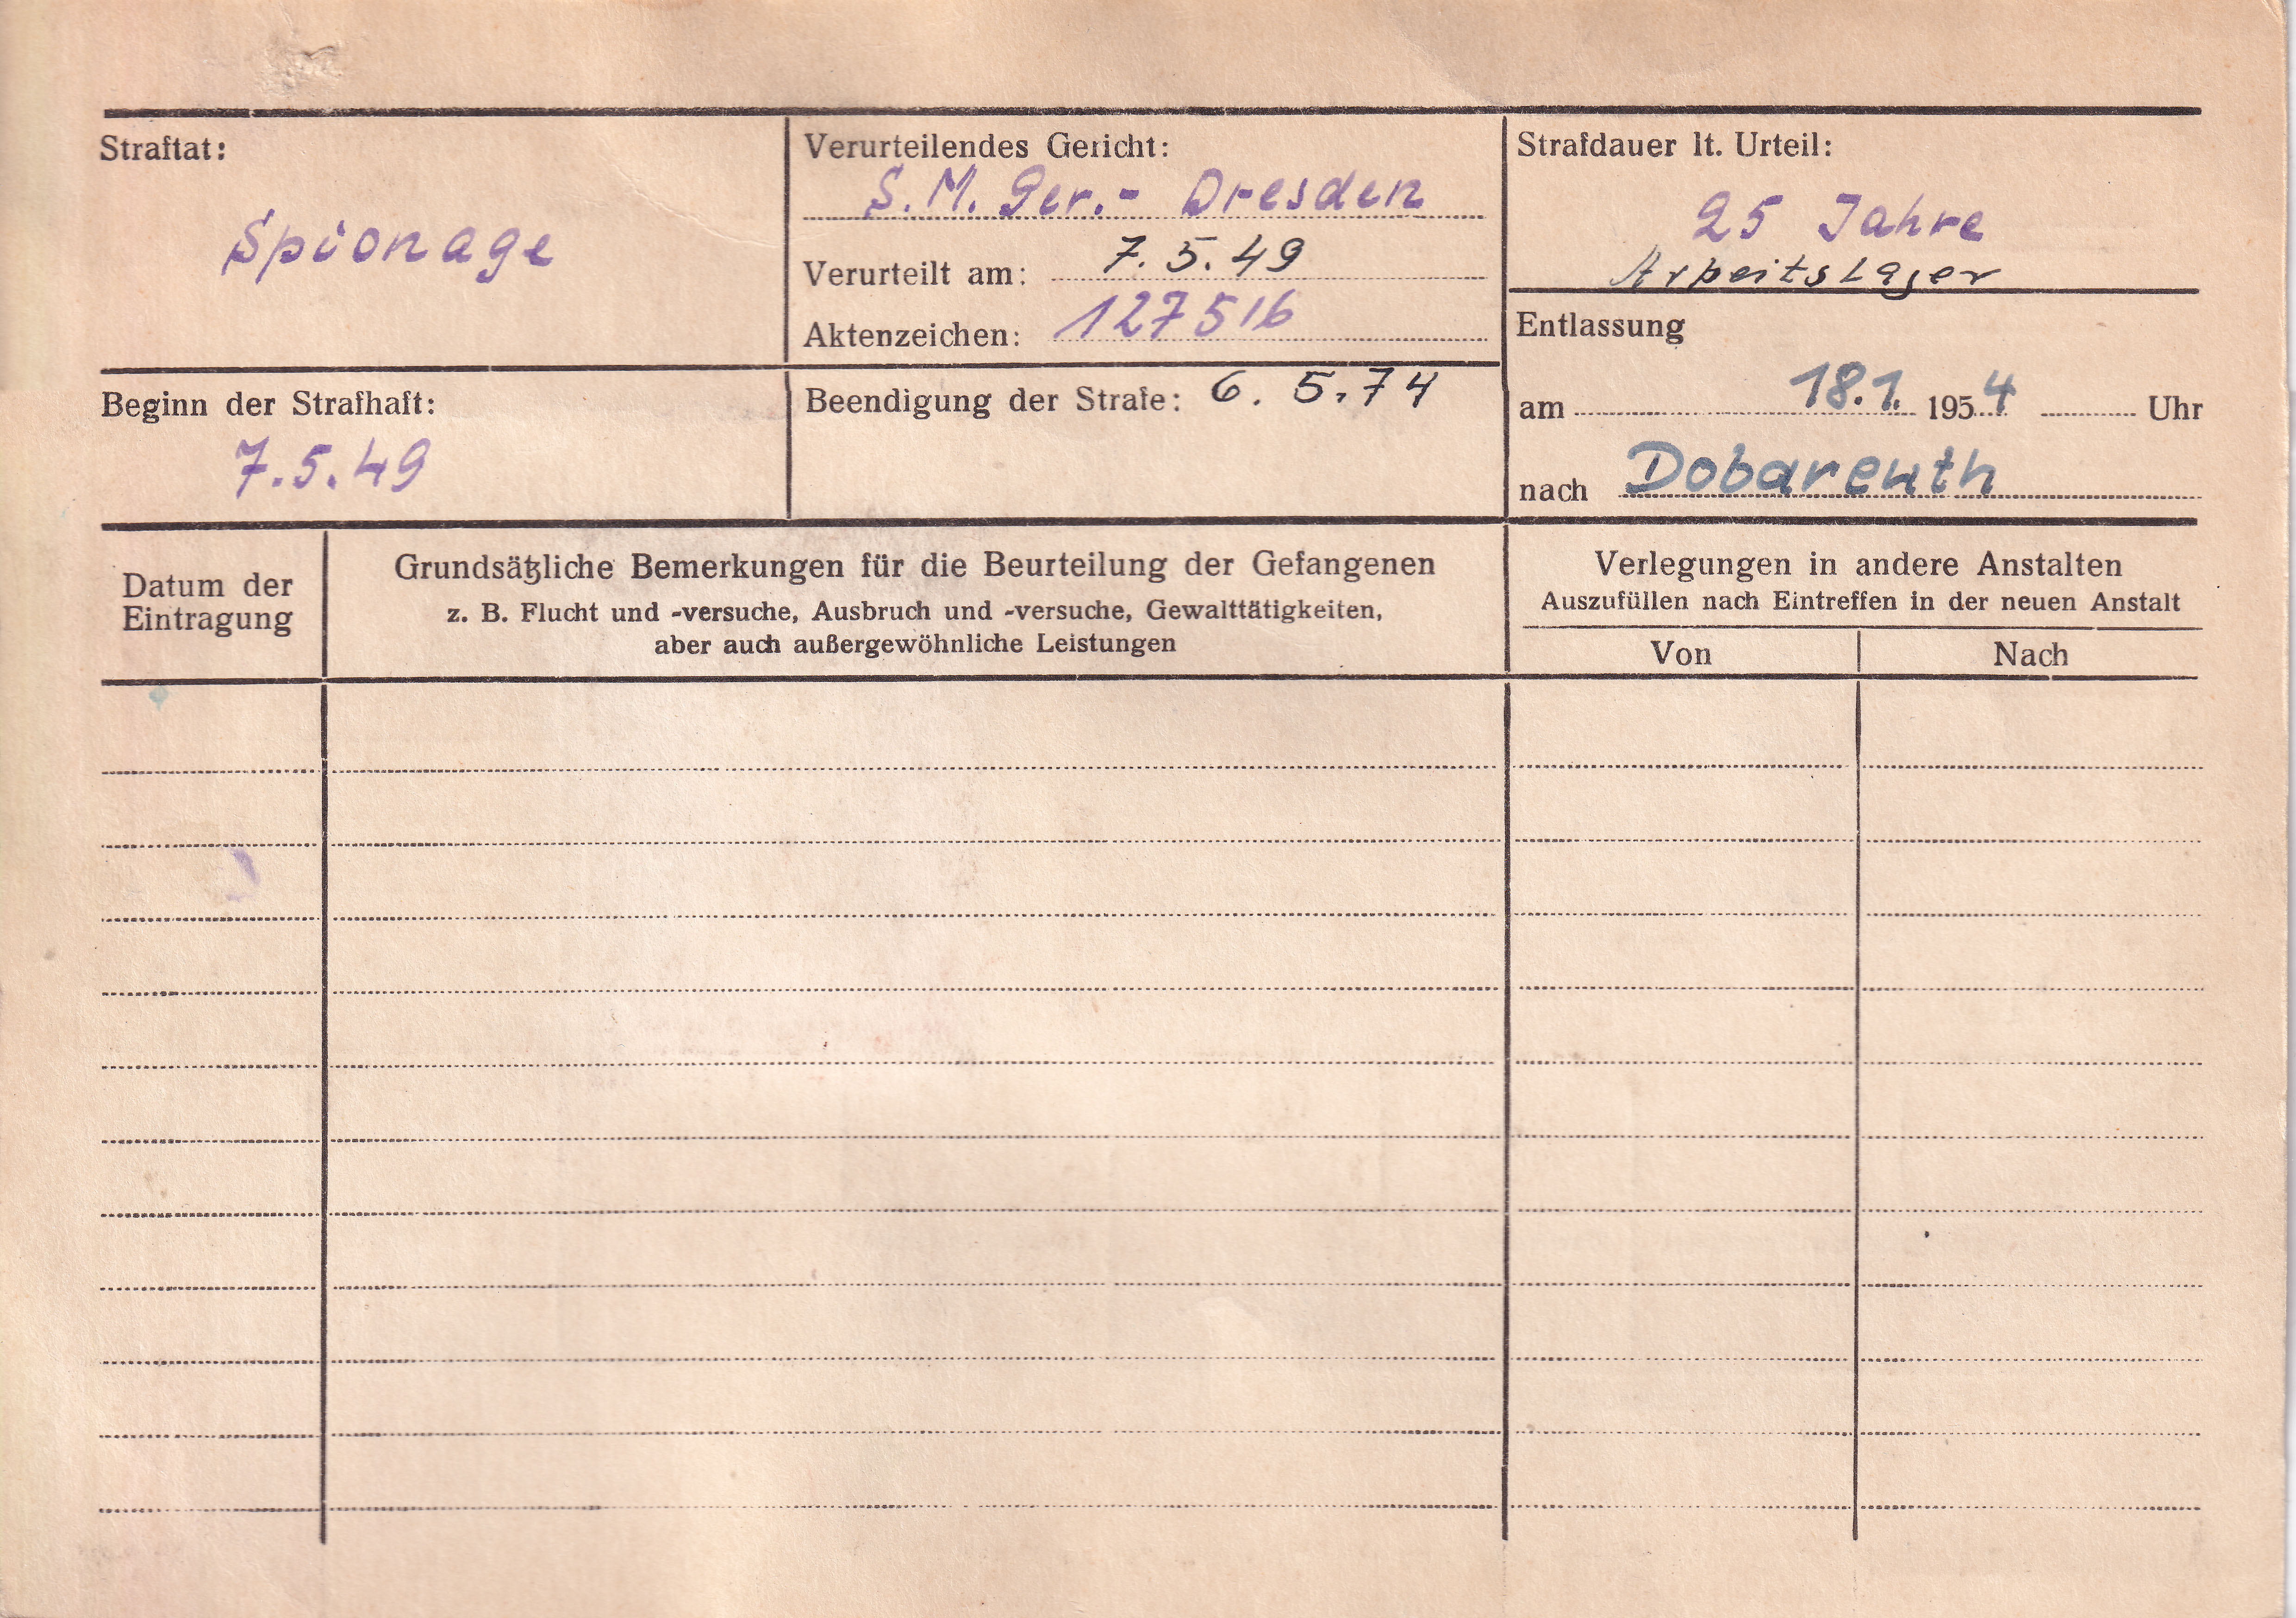 Straftat:
Spionage
Verurteilendes Gericht:
S. M. Ger.- Dresden
Verurteilt am: 7. 5. 49
Aktenzeichen: 127516
Strafdauer lt. Urteil:
25 Jahre
Arbeitslager
Entlassung
am 18.1. 1954 Uhr
nach Dobareuth
Beginn der Strafhaft:
7.5.49
Beendigung der Strafe: 6. 5. 74
Datum der
Eintragung
Grundsätzliche Bemerkungen für die Beurteilung der Gefangenen
z. B. Flucht und -versuche, Ausbruch und -versuche, Gewalttätigkeiten,
aber auch außergewöhnliche Leistungen
Verlegungen in andere Anstalten
Auszufüllen nach Eintreffen in der neuen Anstalt
Von Nach